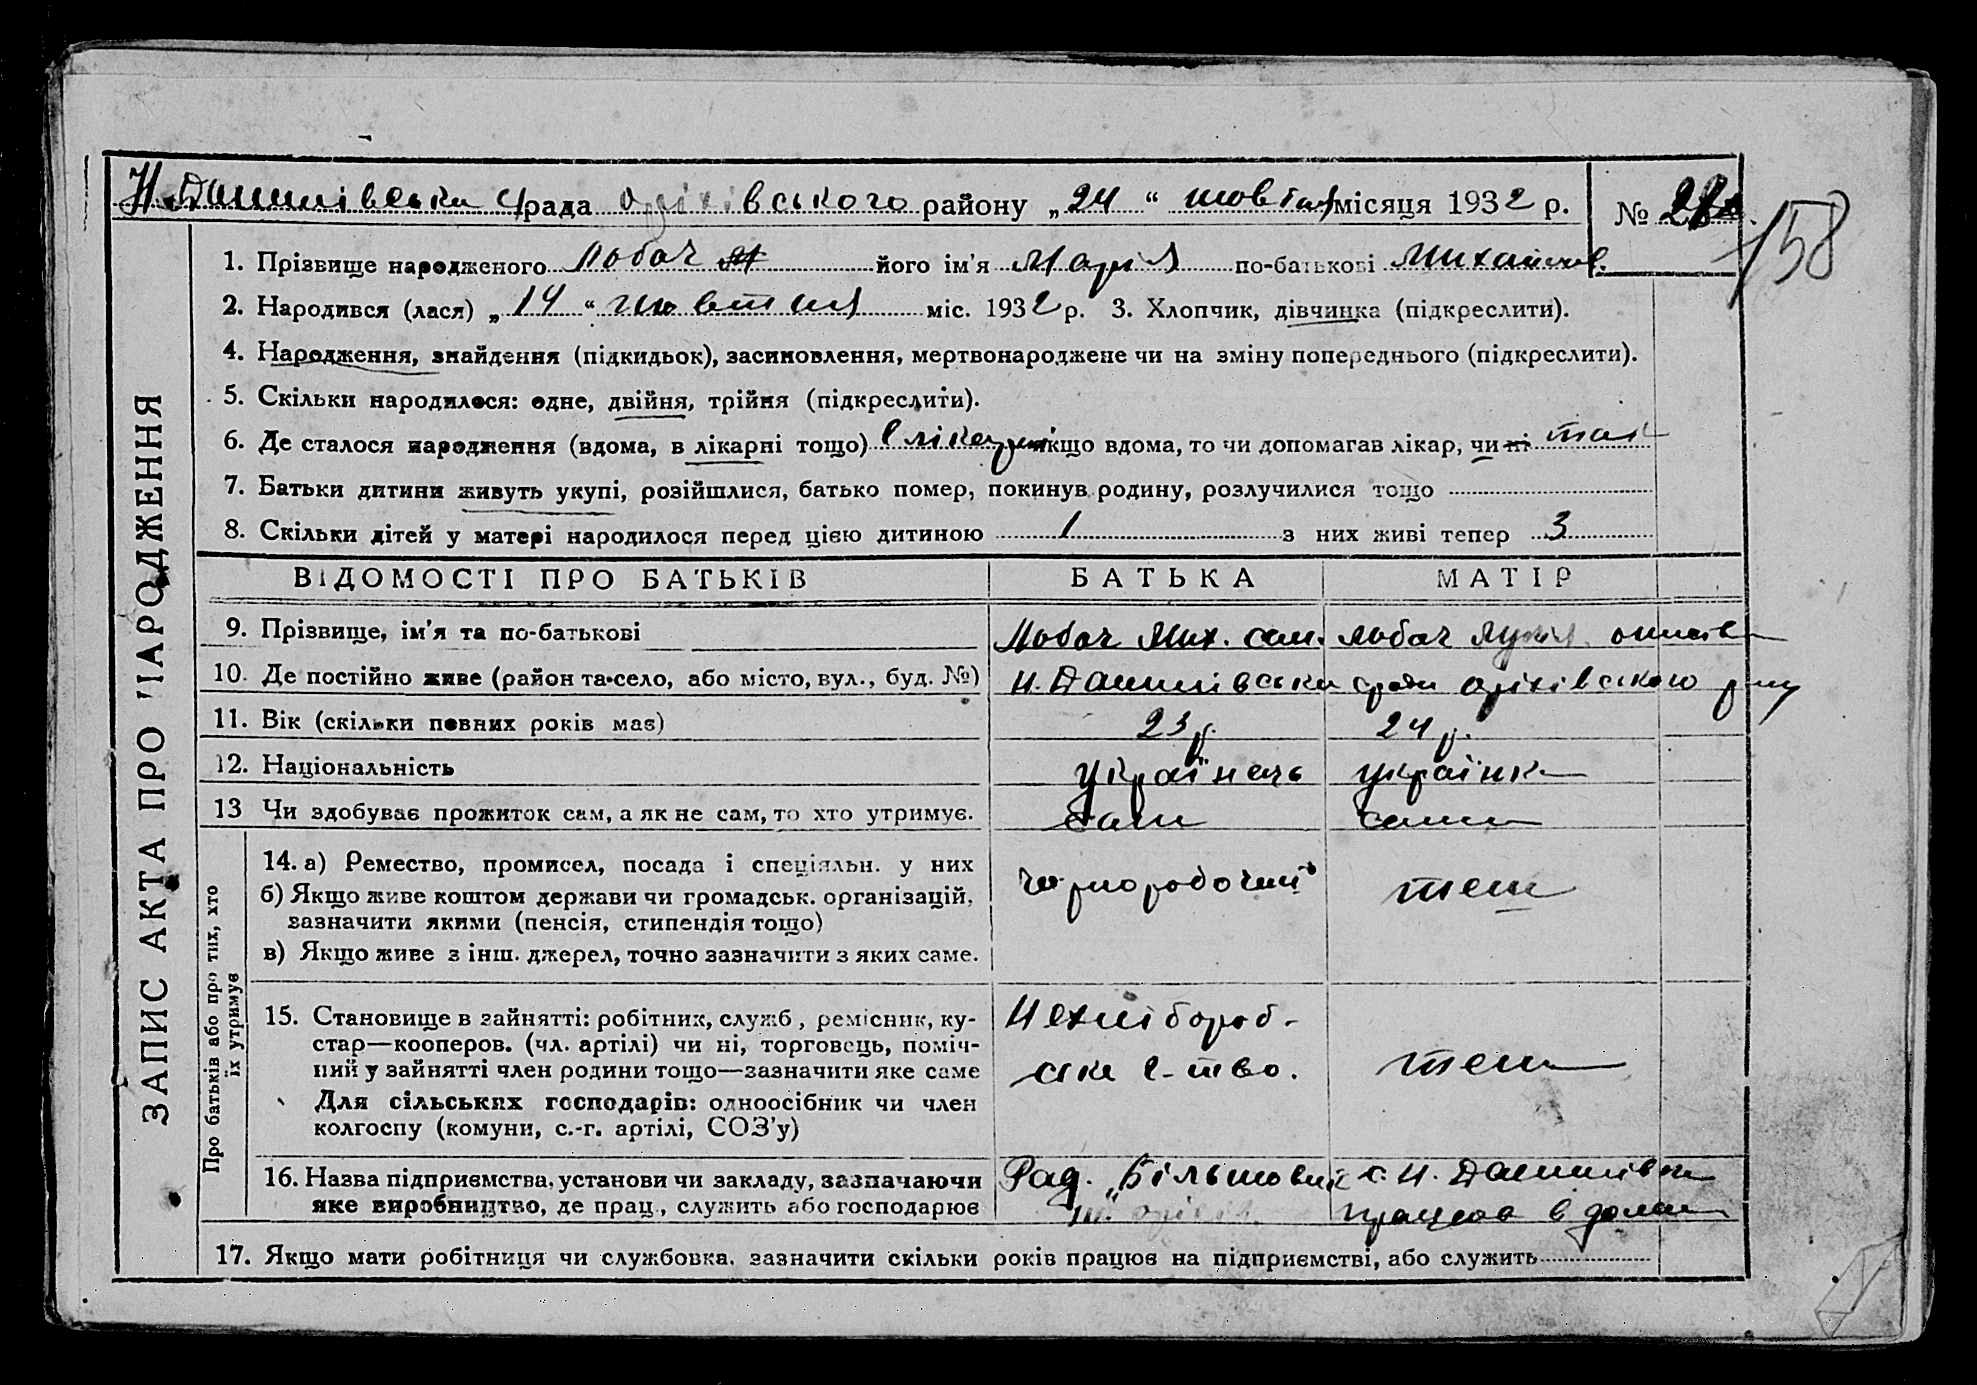 Н.Данилівська с/рада оріхівського району „24“ жовтня місяця 1932 р. № 28
158
ЗАПИС АКТА ПРО НАРОДЖЕННЯ
1. Прізвище народженого Лобач його ім'я Марія по-батькові Михайлів.
2. Народився (лася) „14“ жовтня міс. 1932 р. 3. Хлопчик, дівчинка (підкреслити).
4. Народження, знайдення (підкидьок), засиновлення, мертвонароджене чи на зміну попереднього (підкреслити).
5. Скільки народилося: одне, двійня, трійня (підкреслити).
6. Де сталося народження (вдома, в лікарні тощо) в лікарні якщо вдома, то чи допомагав лікар, чи ні так
7. Батьки дитини живуть укупі, розійшлися, батько помер, покинув родину, розлучилися тощо
8. Скільки дітей у матері народилося перед цією дитиною 1 з них живі тепер 3
ВІДОМОСТІ ПРО БАТЬКІВ БАТЬКА МАТІР
9. Прізвище, ім'я та по-батькові Лобач Мих. сам. Лобач
10. Де постійно живе (район та село, або місто, вул., буд. №) Н.Данилівська сради оріхівського р-ну
11. Вік (скільки повних років має) 23 р. 24 р.
12. Національність Українець українка
13 Чи здобуває прожиток сам, а як не сам, то хто утримує. сам сама
Про батьків або про тих, хто
їх утримує
14. а) Ремество, промисел, посада і спеціяльн. у них
б) Якщо живе коштом держави чи громадськ. організацій,
зазначити якими (пенсія, стипендія тощо)
в) Якщо живе з інш. джерел, точно зазначити з яких саме.
Чорноробочий теж
15. Становище в зайнятті: робітник, служб., ремісник, ку-
стар—кооперов. (чл. артілі) чи ні, торговець, поміч-
ний у зайнятті член родини тощо—зазначити яке саме
Для сільських господарів: одноосібник чи член
колгоспу (комуни, с.-г. артілі, СОЗ'у)
Нехлібороб-
ске с-тво. теж
16. Назва підприємства, установи чи закладу, зазначаючи Рад. „Більшовик с. Н. Данилівка
яке виробництво, де прац., служить або господарює працює в дома
17. Якщо мати робітниця чи службовка, зазначити скільки років працює на підприємстві, або служить